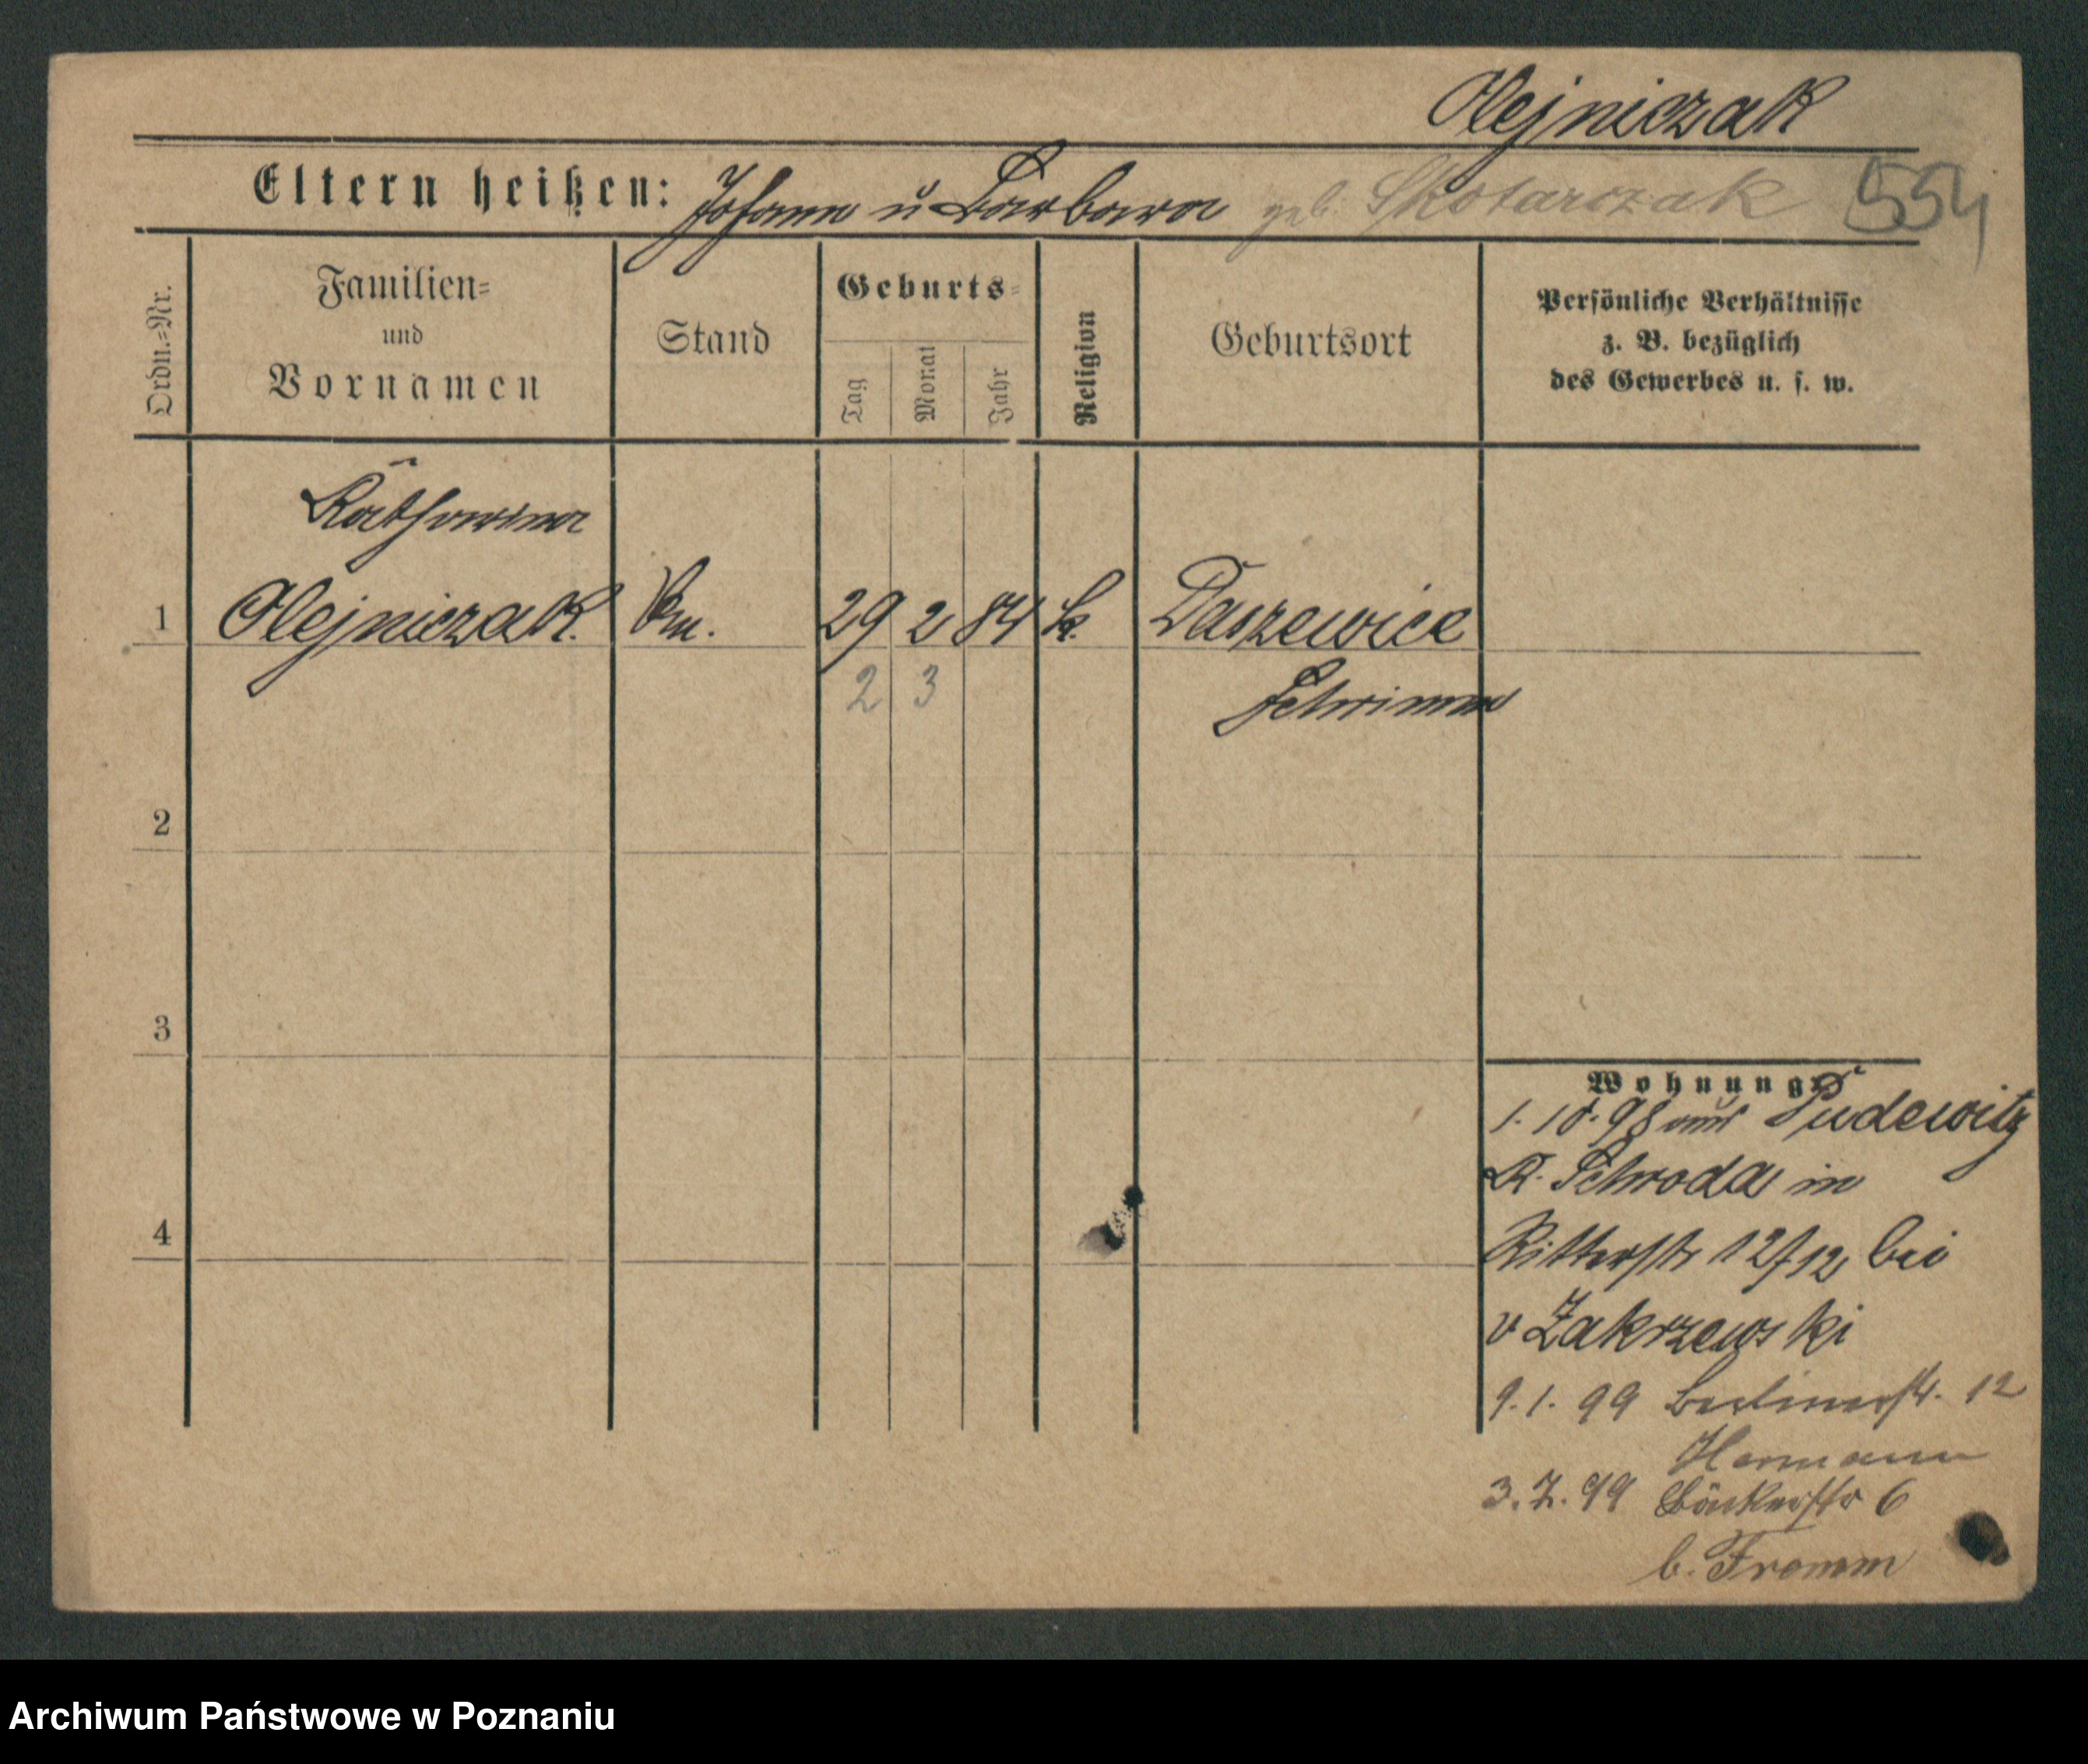 Olejniczak
Eltern heißen: Johann u Barbara geb. Skotarczak 554
Ordn.=Nr.
Familien=
und
Vornamen
Stand
Geburts=
Tag
Monat
Jahr
Religion
Geburtsort
Persönliche Verhältnisse
z. B. bezüglich
des Gewerbes u. s. w.
Katharina
1 Olejniczak. 29 2 84 k. Daszewice
2 3 Schrimm
2
3
4
Wohnung
1. 10. 98 aus Pudewitz
K. Schroda in
Ritterstr 12/12 bei
v Zakrzewski
9. 1. 99 Berlinerstr. 12
Hermann
3. 7. 99 Bäckerstr 6
b. Fromm
Archiwum Państwowe w Poznaniu